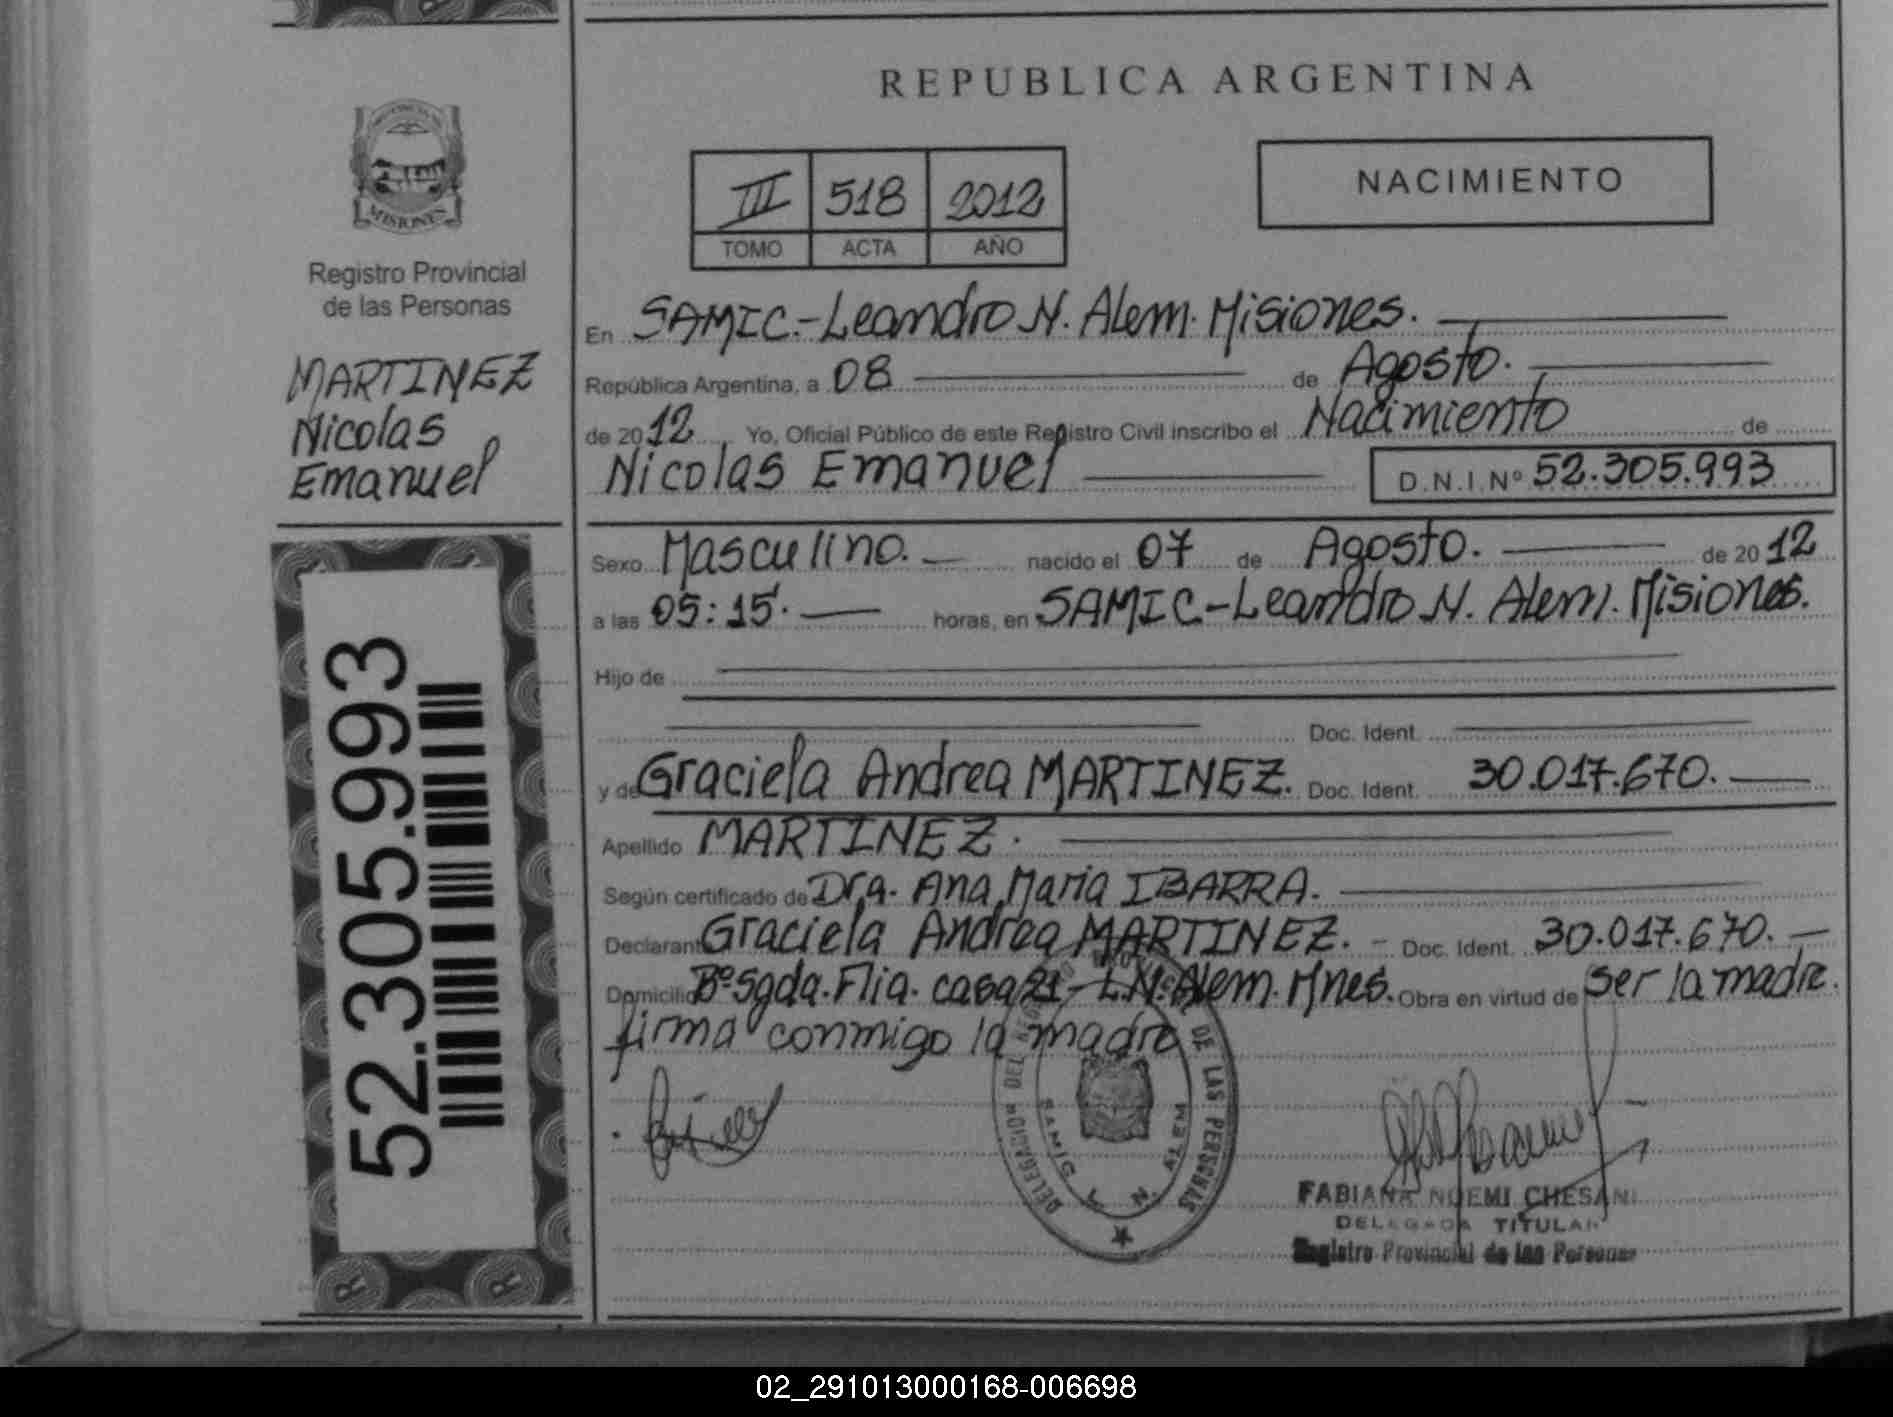 REPUBLICA ARGENTINA
NACIMIENTO
III 518 2012
TOMO ACTA AÑO
MISIONES
Registro Provincial
de las Personas
MARTINEZ
Nicolas
Emanuel
52.305.993
En SAMIC.-Leandro N. Alem. Misiones.
República Argentina, a 08 de Agosto.
de 2012 Yo, Oficial Público de este Registro Civil inscribo el Nacimiento de
Nicolas Emanuel D.N.I. Nº 52.305.993
Sexo Masculino. nacido el 07 de Agosto. de 2012
a las 05:15. horas, en SAMIC-Leandro N. Alem. Misiones.
Hijo de
Doc. Ident.
y de Graciela Andrea MARTINEZ. Doc. Ident. 30.017.670.
Apellido MARTINEZ.
Según certificado de Dra. Ana Maria IBARRA.
Declarante Graciela Andrea MARTINEZ. - Doc. Ident. 30.017.670.
Domicilio Bº Sgda. Flia. casa 21 - L.N. Alem. Mnes. Obra en virtud de ser la madre.
firma conmigo la madre
DELEGACION DEL REGISTRO PROVINCIAL DE LAS PERSONAS
SAMIC L. N. ALEM
FABIANA NOEMI CHESANI
DELEGADA TITULAR
Registro Provincial de las Personas
R R
02_291013000168-006698